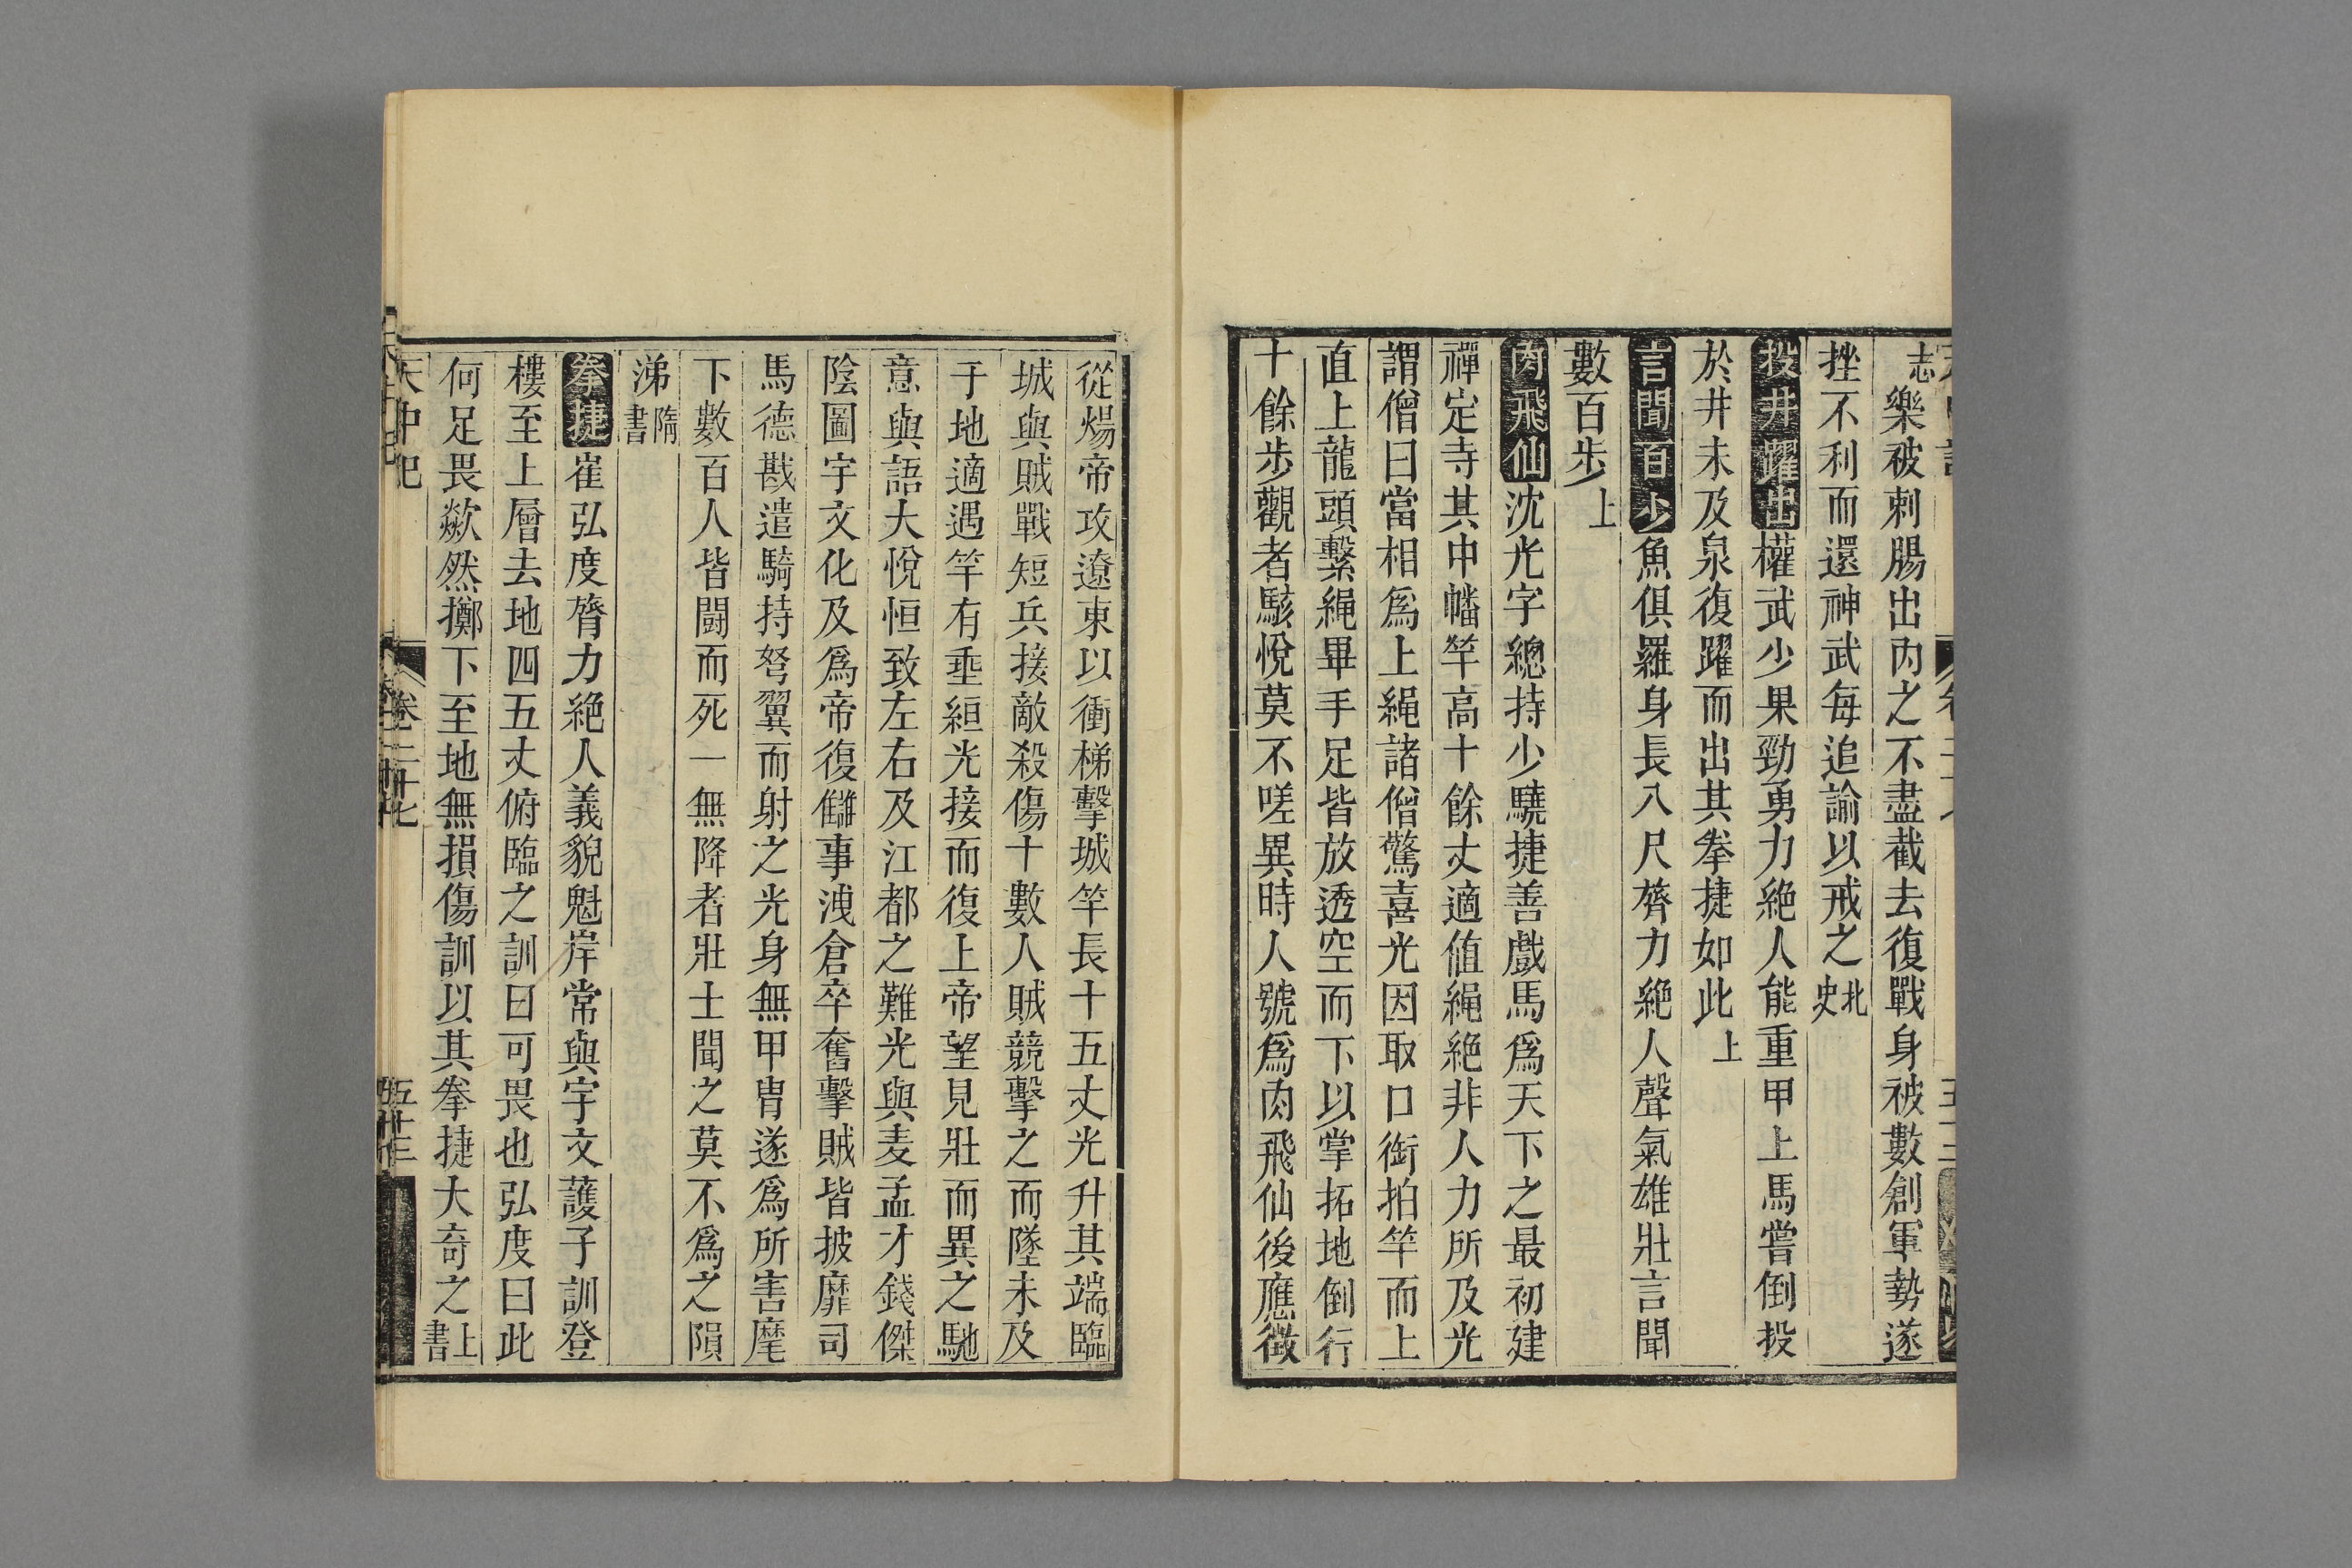 志樂被刺腸出內之不盡截去復戰身被數創軍勢遂
挫不利而還神武每追論以戒之北史
投井躍出權武少果勁勇力絶人能重甲上馬嘗倒投
於井未及泉復躍而出其拳捷如此上
言聞百步魚俱羅身長八尺膂力絶人聲氣雄壯言聞
數百步上
肉飛仙沈光字總持少驍捷善戲馬爲天下之最初建
禪定寺其中幡竿高十餘丈適值繩絶非人力所及光
謂僧曰當相爲上繩諸僧驚喜光因取口銜拍竿而上
直上龍頭繫繩畢手足皆放透空而下以掌拓地倒行
十餘步觀者駭悅莫不嗟異時人號爲肉飛仙後應徵
從煬帝攻遼東以衝梯擊城竿長十五丈光升其端臨
城與賊戰短兵接敵殺傷十數人賊競擊之而墜未及
于地適遇竿有垂絙光接而復上帝望見壯而異之馳
意與語大悅恒致左右及江都之難光與麦孟才錢傑
陰圖宇文化及爲帝復讎事洩倉卒奮擊賊皆披靡司
馬德戡遣騎持弩翼而射之光身無甲胄遂爲所害麾
下數百人皆鬪而死一無降者壯士聞之莫不爲之隕
涕隋書
拳捷崔弘度膂力絶人義貌魁岸常與宇文護子訓登
樓至上層去地四五丈俯臨之訓曰可畏也弘度曰此
何足畏歘然擲下至地無損傷訓以其拳捷大奇之上書
天中記 卷二十七 五十三